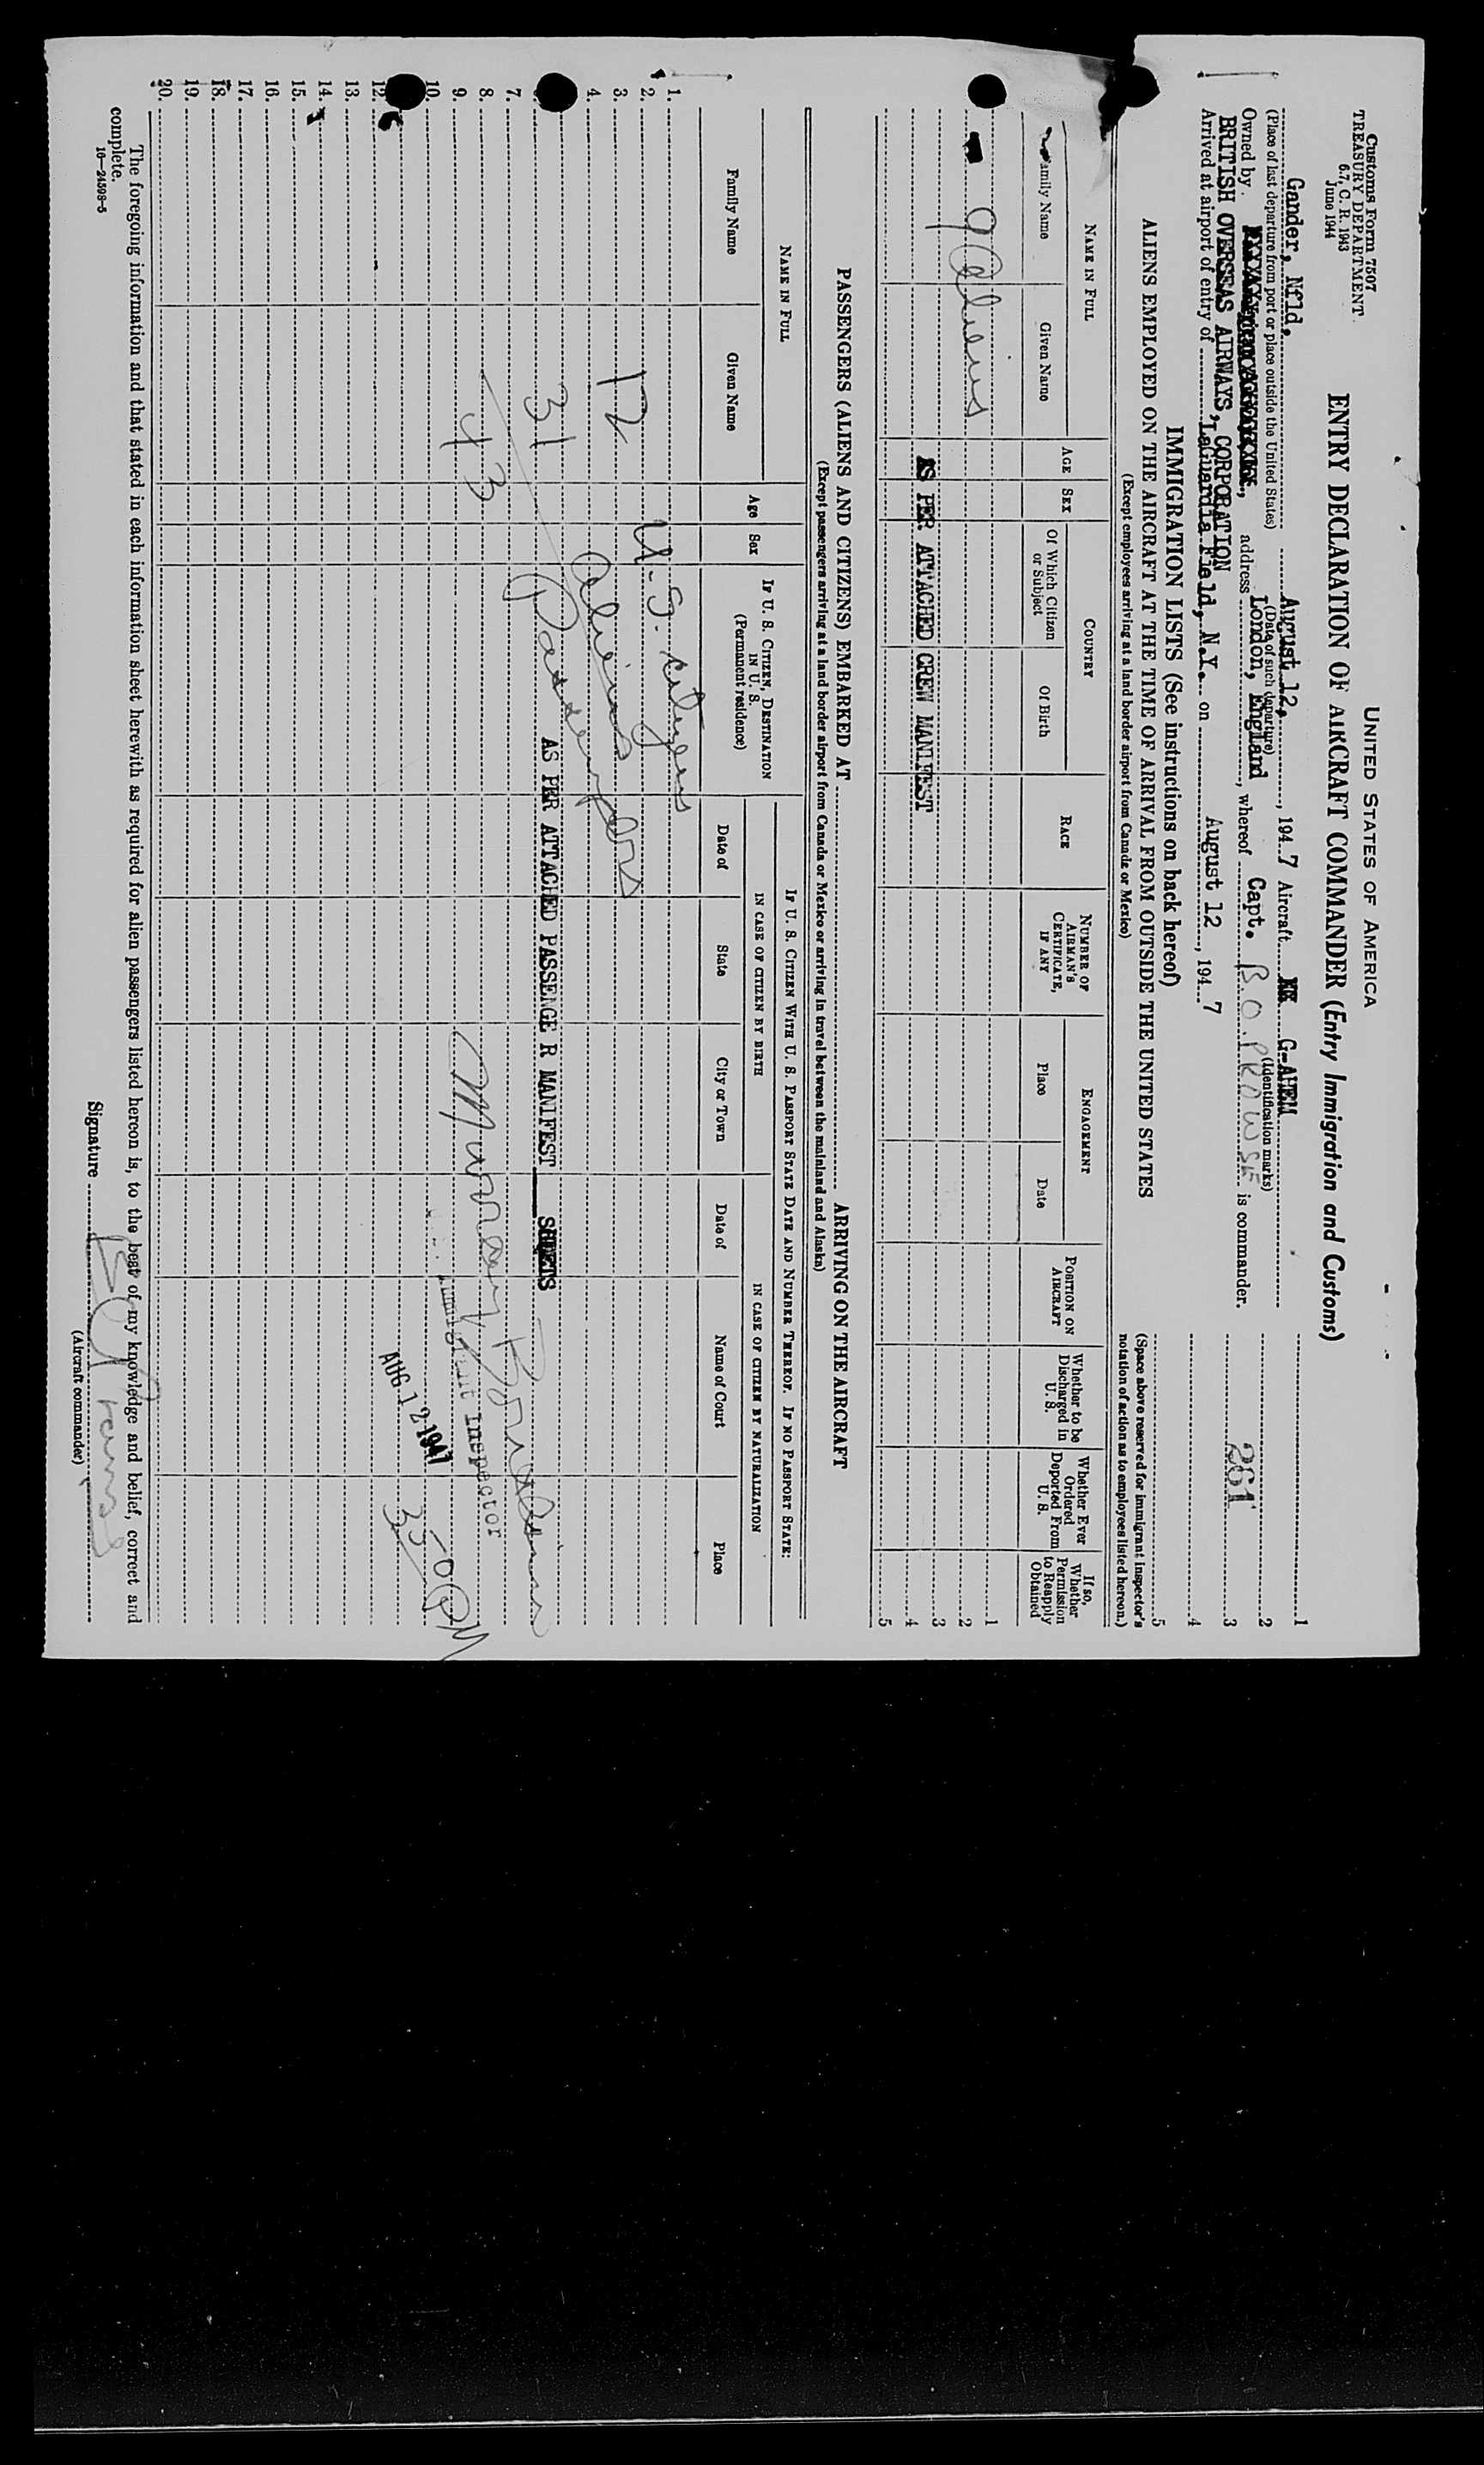 Customs Form 7507
TREASURY DEPARTMENT
6.7, C. R. 1943
June 1944
UNITED STATES OF AMERICA
ENTRY DECLARATION OF AIRCRAFT COMMANDER (Entry Immigration and Customs)
Gander, Nfld. August 12, 1947 Aircraft G-AHEM
(Place of last departure from port or place outside the United States) (Date of such departure) (Identification marks)
Owned by address London, England, whereof Capt. B.O. PROWSE is commander.
BRITISH OVERSEAS AIRWAYS, CORPORATION
Arrived at airport of entry of LaGuardia Field, N.Y. on August 12, 1947
1
2
261 3
4
5
IMMIGRATION LISTS (See instructions on back hereof)
(Space above reserved for immigrant inspector's notation of action as to employees listed hereon.)
ALIENS EMPLOYED ON THE AIRCRAFT AT THE TIME OF ARRIVAL FROM OUTSIDE THE UNITED STATES
(Except employees arriving at a land border airport from Canada or Mexico)
NAME IN FULL
Family Name
Given Name
AGE
SEX
COUNTRY
Of Which Citizen or Subject
Of Birth
RACE
NUMBER OF AIRMAN'S CERTIFICATE, IF ANY
ENGAGEMENT
Place
Date
POSITION ON AIRCRAFT
Whether to be Discharged in U. S.
Whether Ever Ordered Deported From U. S.
If so, Whether Permission to Reapply Obtained
1
9 Aliens 2
AS PER ATTACHED CREW MANIFEST 3
4
5
PASSENGERS (ALIENS AND CITIZENS) EMBARKED AT ARRIVING ON THE AIRCRAFT
(Except passengers arriving at a land border airport from Canada or Mexico or arriving in travel between the mainland and Alaska)
NAME IN FULL
Family Name
Given Name
Age
Sex
IF U. S. CITIZEN, DESTINATION IN U. S. (Permanent residence)
IF U. S. CITIZEN WITH U. S. PASSPORT STATE DATE AND NUMBER THEREOF. IF NO PASSPORT STATE:
IN CASE OF CITIZEN BY BIRTH
Date of
State
City or Town
IN CASE OF CITIZEN BY NATURALIZATION
Date of
Name of Court
Place
1.
2.
3. 12 U.S. citizens
4.
31 Aliens
AS PER ATTACHED PASSENGER MANIFEST SHEETS
7.
8. 43 Passengers
9. Immigrant Inspector
10. AUG 12 1947
350 PM
12.
13.
14.
15.
16.
17.
18.
19.
20.
The foregoing information and that stated in each information sheet herewith as required for alien passengers listed hereon is, to the best of my knowledge and belief, correct and
complete.
16—24598-5
Signature
(Aircraft commander)